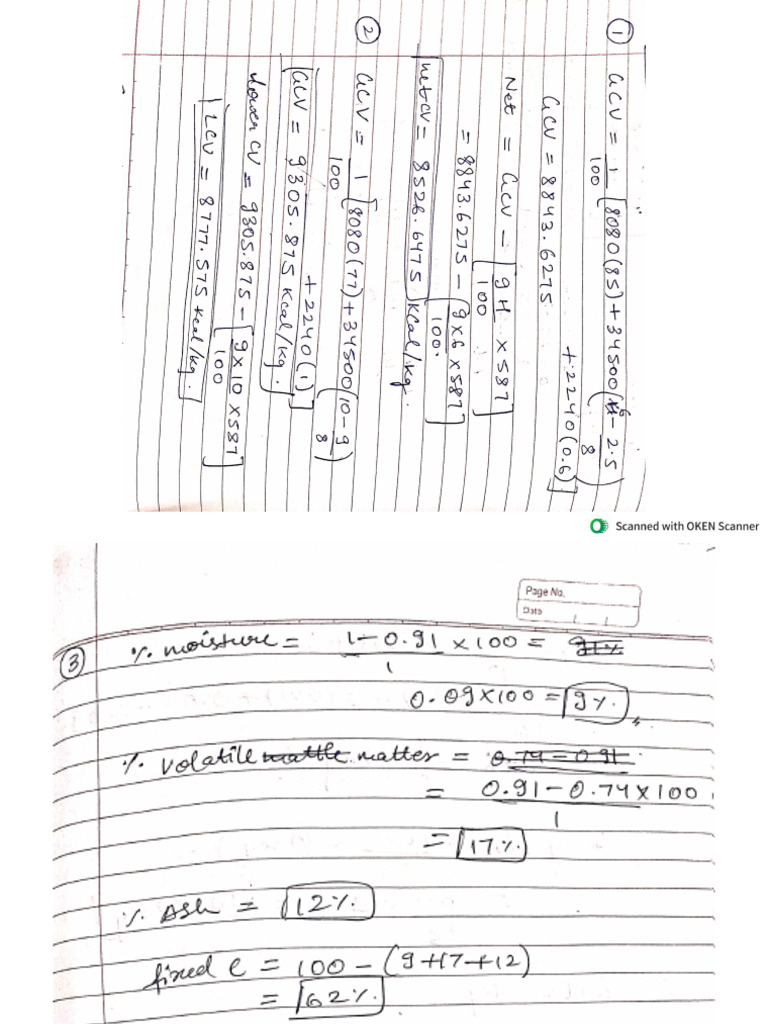 ① GCV = 1/100 [8080(85) + 34500(6 - 2.5/8)
+ 2240(0.6)]
GCV = 8843.6275
Net = GCV - [9H/100 × 587]
= 8843.6275 - [9×6/100 × 587]
net CV = 8526.6475 Kcal/kg.
② GCV = 1/100 [8080(77) + 34500(10 - 9/8)
+ 2240(1)]
GCV = 9305.875 Kcal/kg.
Lower CV = 9305.875 - [9×10/100 × 587]
LCV = 8777.575 Kcal/kg.
Scanned with OKEN Scanner
Page No.
Date
③ % moisture = 1 - 0.91/1 × 100 = 91%
0.09×100 = 9%
% volatile mattle matter = 0.74 - 0.91
= 0.91 - 0.74 × 100/1
= 17%
% Ash = 12%
fixed C = 100 - (9+17+12)
= 62%